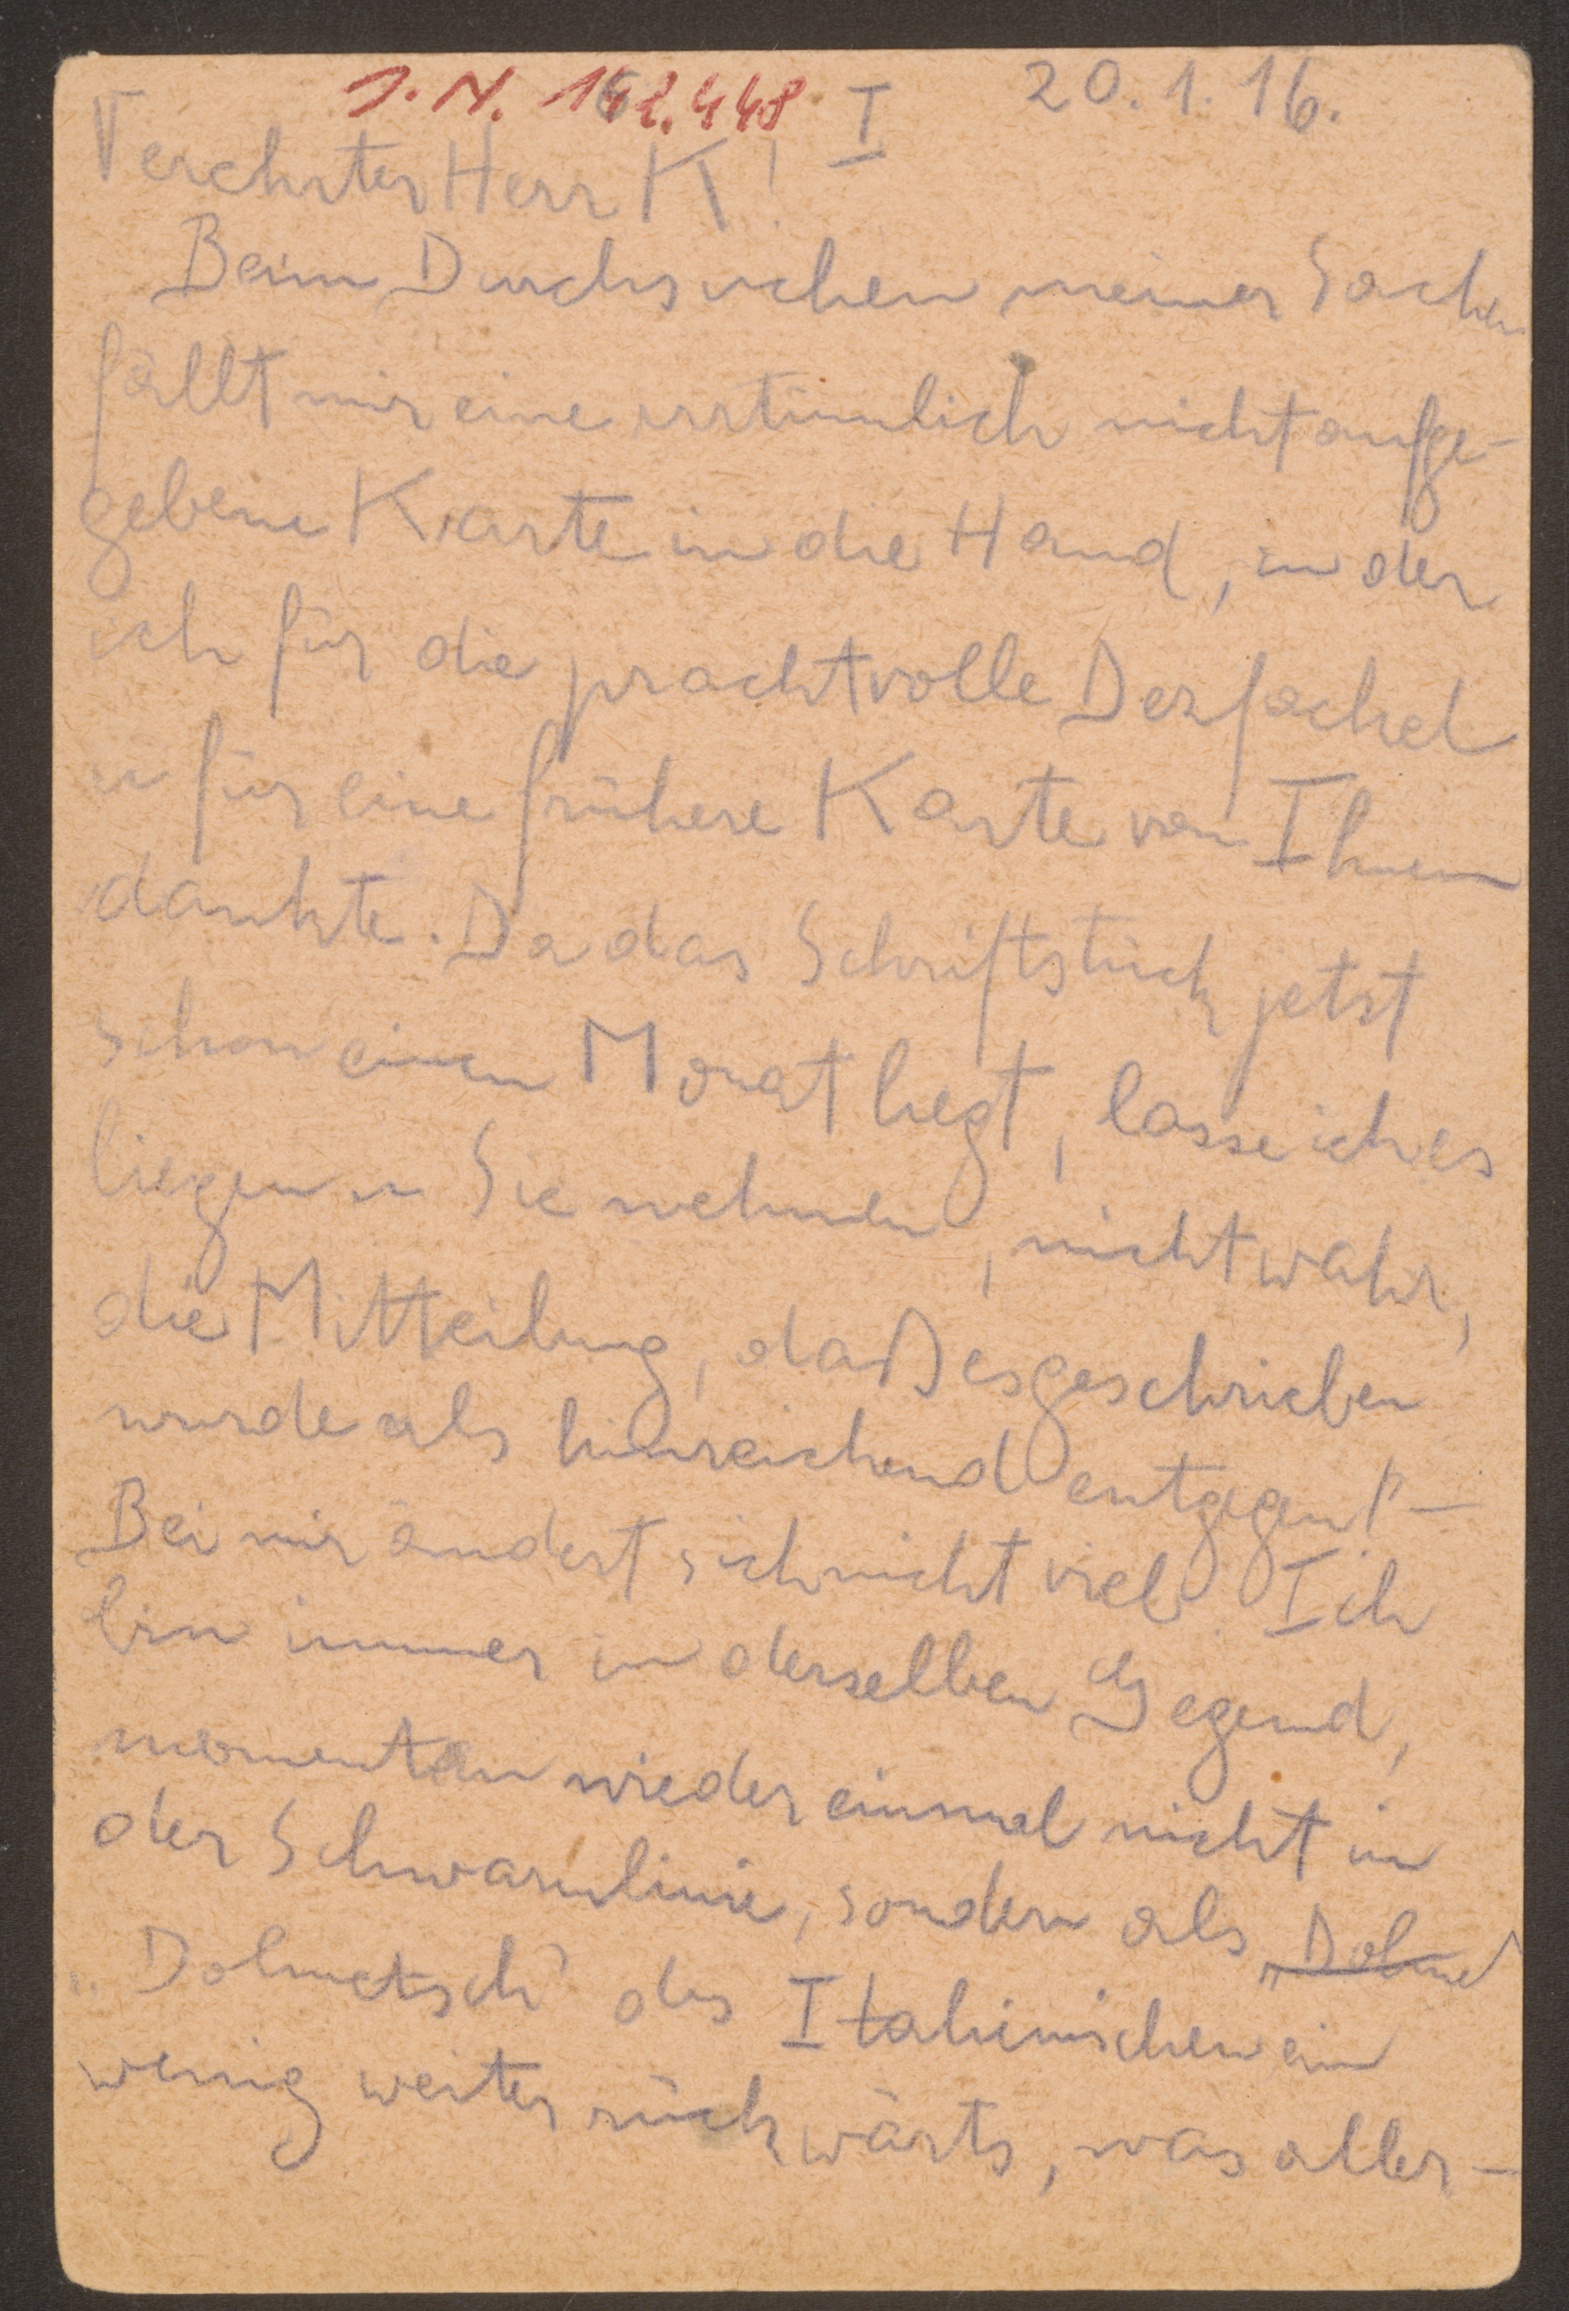 J. N. 162.448 I 20.1.16.
Verehrter Herr K!
Beim Durchsuchen meiner Sachen
fällt mir eine irrtümlich nicht aufge-
gebene Karte in die Hand, in der
ich für die prachtvolle Dezfackel
u für eine frühere Karte von Ihnen
dankte. Da das Schriftstück jetzt
schon einen Monat liegt, lasse ich es
liegen u Sie nehmen, nicht wahr,
die Mitteilung, daß es geschrieben
wurde als hinreichend entgegen! –
Bei mir ändert sich nicht viel. Ich
bin immer in derselben Gegend,
momentan wieder einmal nicht in
der Schwarmlinie, sondern als „Dolme
„Dolmetsch" des Italienischen ein
wenig weiter rückwärts, was aller-